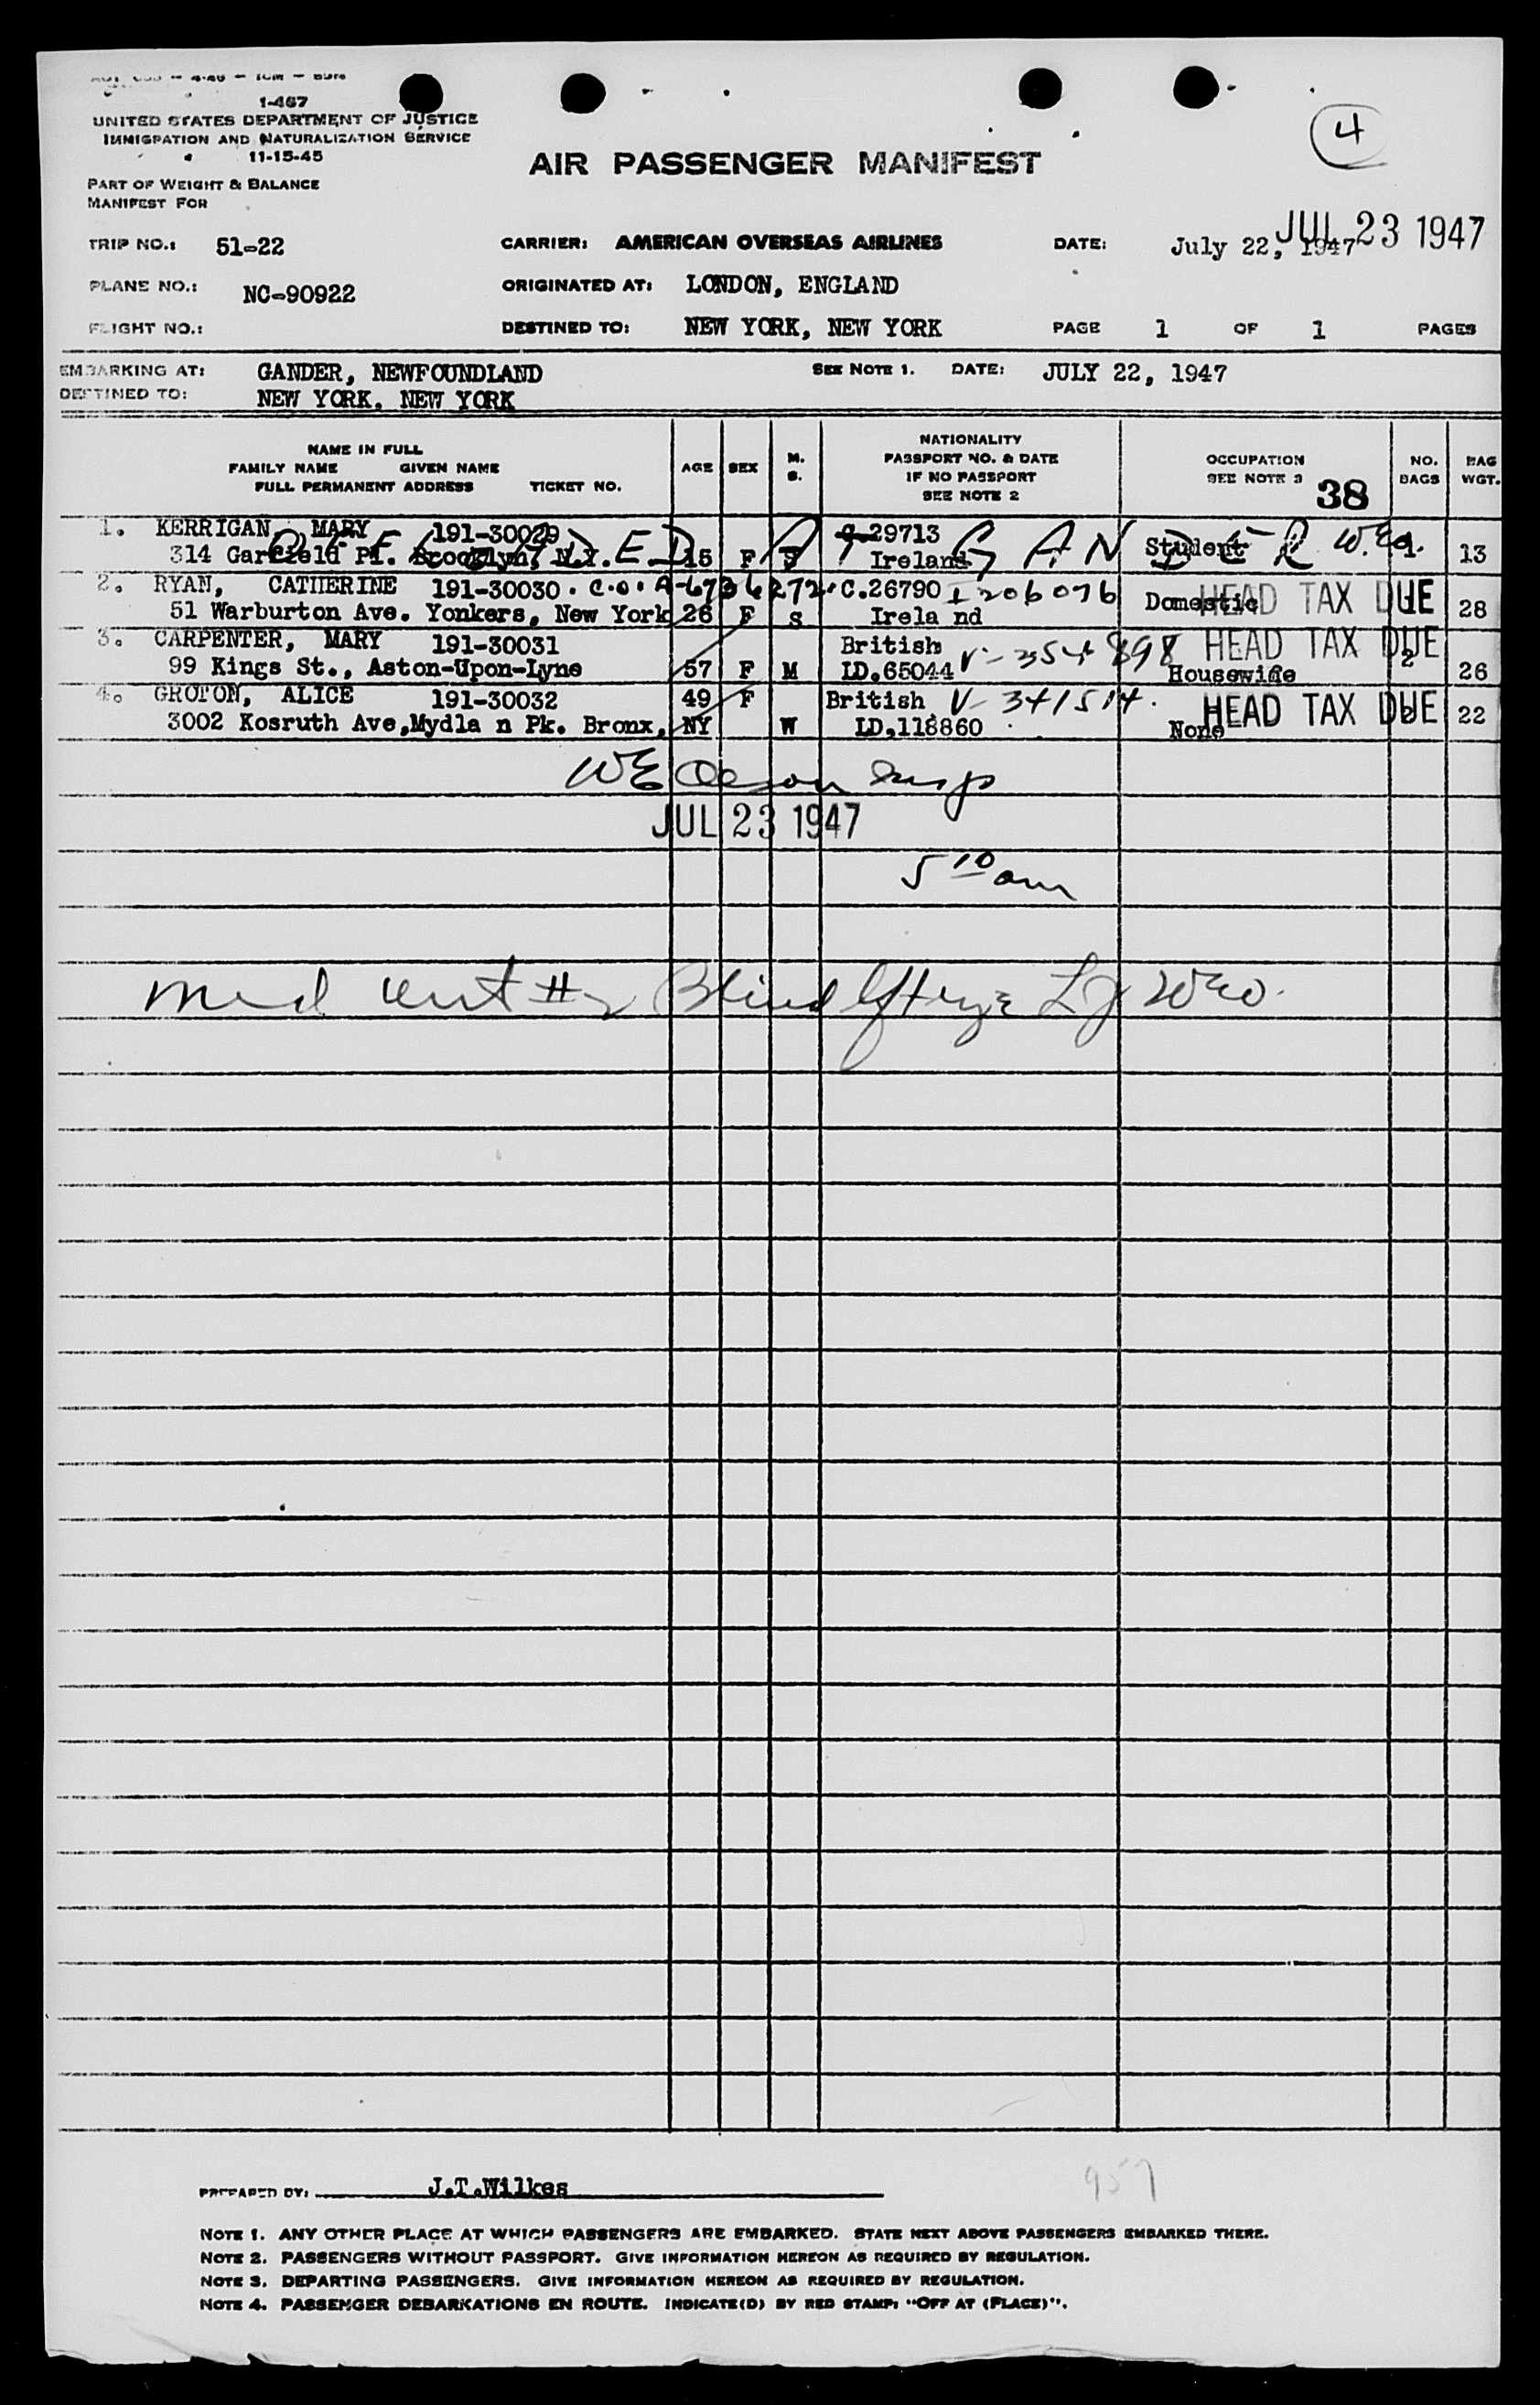 1-467
UNITED STATES DEPARTMENT OF JUSTICE
IMMIGRATION AND NATURALIZATION SERVICE
11-15-45
4
AIR PASSENGER MANIFEST
PART OF WEIGHT & BALANCE
MANIFEST FOR
TRIP NO.: 51-22 CARRIER: AMERICAN OVERSEAS AIRLINES DATE: July 22, 1947 JUL 23 1947
PLANE NO.: NC-90922 ORIGINATED AT: LONDON, ENGLAND
FLIGHT NO.: DESTINED TO: NEW YORK, NEW YORK PAGE 1 OF 1 PAGES
EMBARKING AT: GANDER, NEWFOUNDLAND SEE NOTE 1. DATE: JULY 22, 1947
DESTINED TO: NEW YORK. NEW YORK
NAME IN FULL
FAMILY NAME GIVEN NAME
FULL PERMANENT ADDRESS TICKET NO.
AGE SEX M. S.
NATIONALITY
PASSPORT NO. & DATE
IF NO PASSPORT
SEE NOTE 2
OCCUPATION
SEE NOTE 3 38
NO. BAGS BAG WGT.
1. KERRIGAN MARY 191-30029 29713
314 Garfield Pl. Brooklyn, N.Y. 15 F S Ireland Student 1 13
OFFLOADED AT GANDER
2. RYAN, CATHERINE 191-30030 . C.O. A-6736272 . C.26790 I 206076
51 Warburton Ave. Yonkers, New York 26 F S Irela nd Domestic HEAD TAX DUE 28
3. CARPENTER, MARY 191-30031 British V-354898 HEAD TAX DUE
99 Kings St., Aston-Upon-Lyne 57 F M LD.65044 Housewife 2 26
4. GROTON, ALICE 191-30032 49 F British V-341514. HEAD TAX DUE 22
3002 Kosruth Ave,Mydla n Pk. Bronx, NY W LD,118860 None
WE Olson Insp
JUL 23 1947
5 10 am
Med cert #2 Blind left eye WEO.
PREPARED BY: J.T.Wilkes
957
NOTE 1. ANY OTHER PLACE AT WHICH PASSENGERS ARE EMBARKED. STATE NEXT ABOVE PASSENGERS EMBARKED THERE.
NOTE 2. PASSENGERS WITHOUT PASSPORT. GIVE INFORMATION HEREON AS REQUIRED BY REGULATION.
NOTE 3. DEPARTING PASSENGERS. GIVE INFORMATION HEREON AS REQUIRED BY REGULATION.
NOTE 4. PASSENGER DEBARKATIONS EN ROUTE. INDICATE(D) BY RED STAMP: "OFF AT (PLACE)".